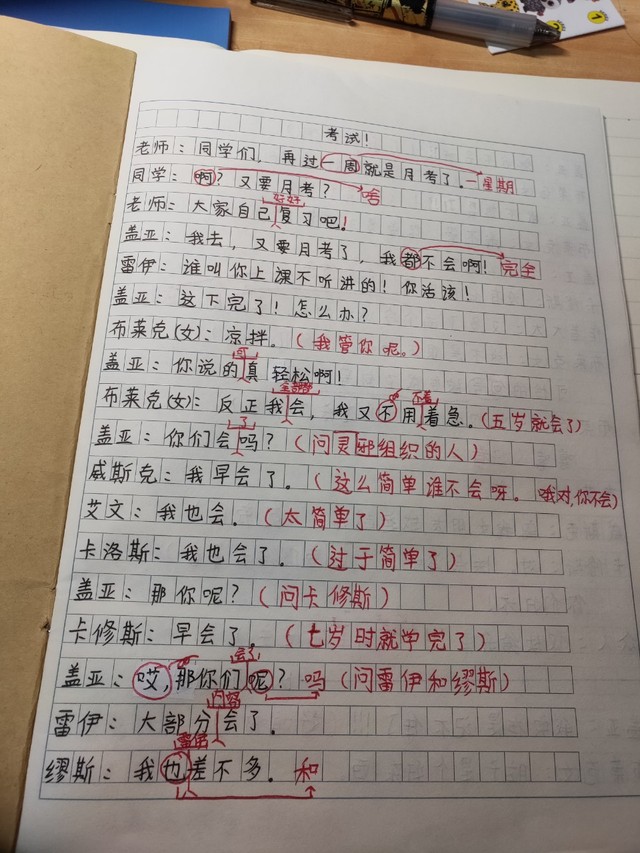 考试！
老师：同学们，再过一周就是月考了。一星期
同学：啊？又要月考？啥
好好
老师：大家自己复习吧！
盖亚：我去，又要月考了，我都不会啊！完全
雷伊：谁叫你上课不听讲的！你活该！
盖亚：这下完了！怎么办？
布莱克(女)：凉拌。（我管你呢。）
可
盖亚：你说的真轻松啊！
全部都 不着
布莱克(女)：反正我会，我又不用着急。（五岁就会了）
了
盖亚：你们会吗？（问灵邸组织的人）
威斯克：我早会了。（这么简单谁不会呀。哦对，你不会）
艾文：我也会。（太简单了）
卡洛斯：我也会了。（过于简单了）
盖亚：那你呢？（问卡修斯）
卡修斯：早会了。（七岁时就学完了）
会了
盖亚：哎，那你们呢？吗（问雷伊和缪斯）
内容
雷伊：大部分会了。
雷伊
缪斯：我也差不多。和